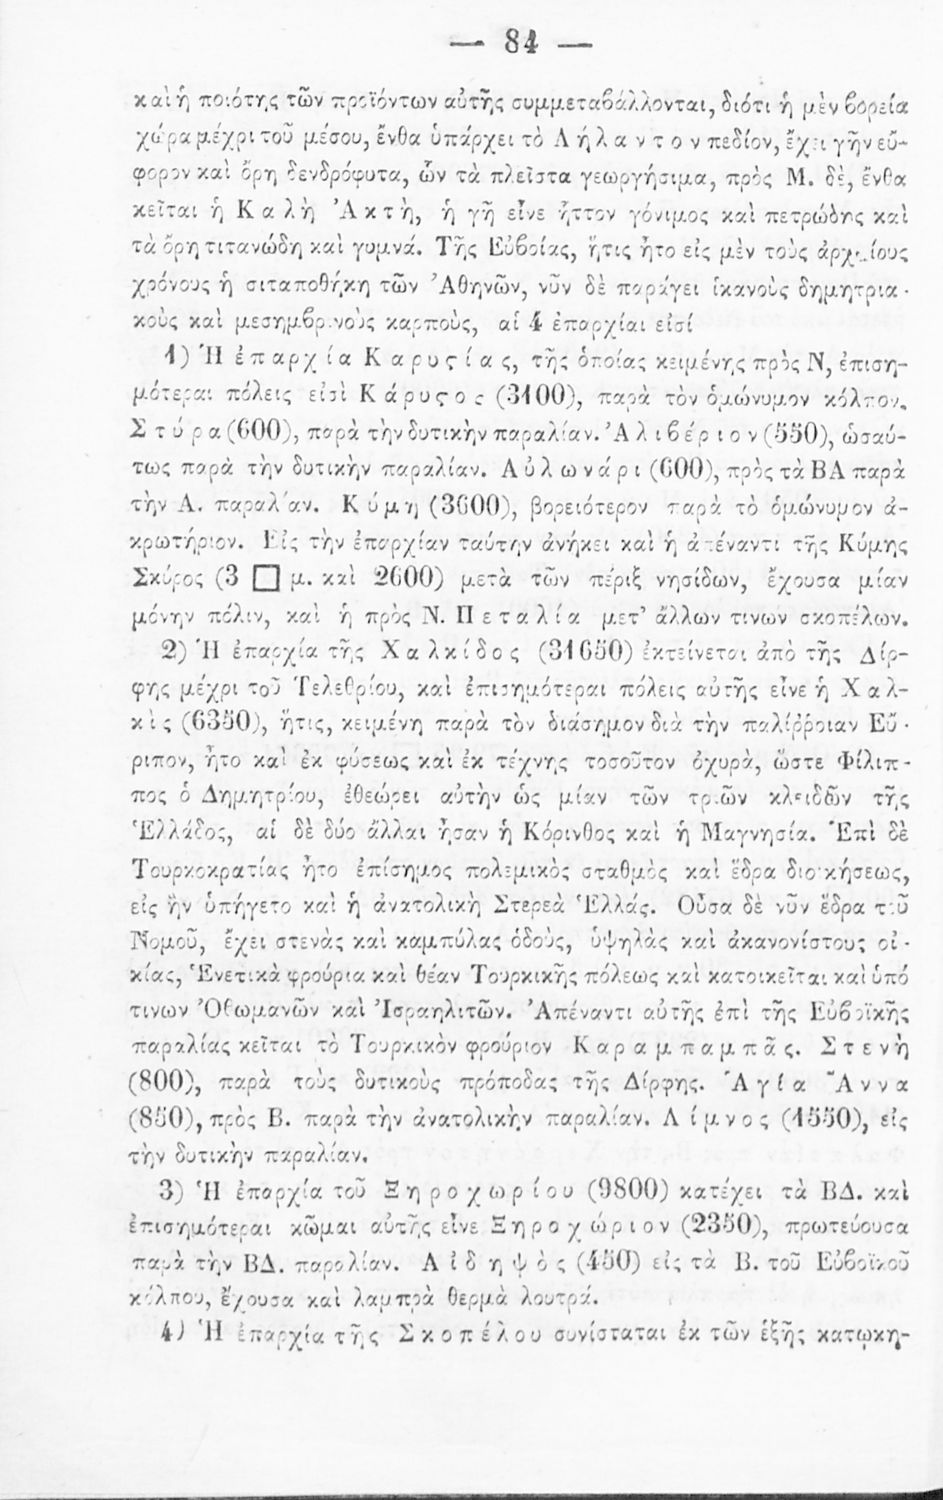 — 84 —
καὶ ἡ ποιότης τῶν προϊόντων αὐτῆς συμμεταβάλλονται, διότι ἡ μὲν βορεία
χώρα μέχρι τοῦ μέσου, ἔνθα ὑπάρχει τὸ Λήλαντον πεδίον, ἔχει γῆν εὔ-
φορον καὶ ὄρη δενδρόφυτα, ὧν τὰ πλεῖστα γεωργήσιμα, πρὸς Μ. δὲ, ἔνθα
κεῖται ἡ Καλὴ Ἀκτὴ, ἡ γῆ εἶνε ἧττον γόνιμος καὶ πετρώδης καὶ
τὰ ὄρη τιτανώδη καὶ γυμνά. Τῆς Εὐβοίας, ἥτις ἦτο εἰς μὲν τοὺς ἀρχαίους
χρόνους ἡ σιταποθήκη τῶν Ἀθηνῶν, νῦν δὲ παράγει ἱκανοὺς δημητρια-
κοὺς καὶ μεσημβρινοὺς καρποὺς, αἱ 4 ἐπαρχίαι εἰσί
1) Ἡ ἐπαρχία Καρυςίας, τῆς ὁποίας κειμένης πρὸς Ν, ἐπιση-
μότεραι πόλεις εἰσὶ Κάρυςος (3100), παρὰ τὸν ὁμώνυμον κόλπον,
Στύρα (600), παρὰ τὴν δυτικὴν παραλίαν. Ἀλιβέριον (550), ὡσαύ-
τως παρὰ τὴν δυτικὴν παραλίαν. Αὐλωνάρι (600), πρὸς τὰ ΒΑ παρὰ
τὴν Α. παραλίαν. Κύμη (3600), βορειότερον παρὰ τὸ ὁμώνυμον ἀ-
κρωτήριον. Εἰς τὴν ἐπαρχίαν ταύτην ἀνήκει καὶ ἡ ἀπέναντι τῆς Κύμης
Σκύρος (3 □ μ. καὶ 2600) μετὰ τῶν πέριξ νησίδων, ἔχουσα μίαν
μόνην πόλιν, καὶ ἡ πρὸς Ν. Πεταλία μετ’ ἄλλων τινων σκοπέλων.
2) Ἡ ἐπαρχία τῆς Χαλκίδος (31650) ἐκτείνεται ἀπὸ τῆς Δίρ-
φης μέχρι τοῦ Τελεθρίου, καὶ ἐπισημότεραι πόλεις αὐτῆς εἶνε ἡ Χαλ-
κὶς (6350), ἥτις, κειμένη παρὰ τὸν διάσημον διὰ τὴν παλίῤῥοιαν Εὔ-
ριπον, ἦτο καὶ ἐκ φύσεως καὶ ἐκ τέχνης τοσοῦτον ὀχυρὰ, ὥστε Φίλιπ-
πος ὁ Δημητρίου, ἐθεώρει αὐτὴν ὡς μίαν τῶν τριῶν κλειδῶν τῆς
Ἑλλάδος, αἱ δὲ δύο ἄλλαι ἦσαν ἡ Κόρινθος καὶ ἡ Μαγνησία. Ἐπὶ δὲ
Τουρκοκρατίας ἦτο ἐπίσημος πολεμικὸς σταθμὸς καὶ ἕδρα διοικήσεως,
εἰς ἣν ὑπήγετο καὶ ἡ ἀνατολικὴ Στερεὰ Ἑλλάς. Οὖσα δὲ νῦν ἕδρα τοῦ
Νομοῦ, ἔχει στενὰς καὶ καμπύλας ὁδοὺς, ὑψηλὰς καὶ ἀκανονίστους οἰ-
κίας, Ἑνετικὰ φρούρια καὶ θέαν Τουρκικῆς πόλεως καὶ κατοικεῖται καὶ ὑπό
τινων Ὀθωμανῶν καὶ Ἰσραηλιτῶν. Ἀπέναντι αὐτῆς ἐπὶ τῆς Εὐβοϊκῆς
παραλίας κεῖται τὸ Τουρκικὸν φρούριον Καραμπαμπᾶς. Στενὴ
(800), παρὰ τοὺς δυτικοὺς πρόποδας τῆς Δίρφης. Ἁγία Ἄννα
(850), πρὸς Β. παρὰ τὴν ἀνατολικὴν παραλίαν. Λίμνος (1550), εἰς
τὴν δυτικὴν παραλίαν.
3) Ἡ ἐπαρχία τοῦ Ξηροχωρίου (9800) κατέχει τὰ ΒΔ. καὶ
ἐπισημότεραι κῶμαι αὐτῆς εἶνε Ξηροχώριον (2350), πρωτεύουσα
παρὰ τὴν ΒΔ. παραλίαν. Αἰδηψὸς (450) εἰς τὰ Β. τοῦ Εὐβοϊκοῦ
κόλπου, ἔχουσα καὶ λαμπρὰ θερμὰ λουτρά.
4) Ἡ ἐπαρχία τῆς Σκοπέλου συνίσταται ἐκ τῶν ἑξῆς κατῳκη-